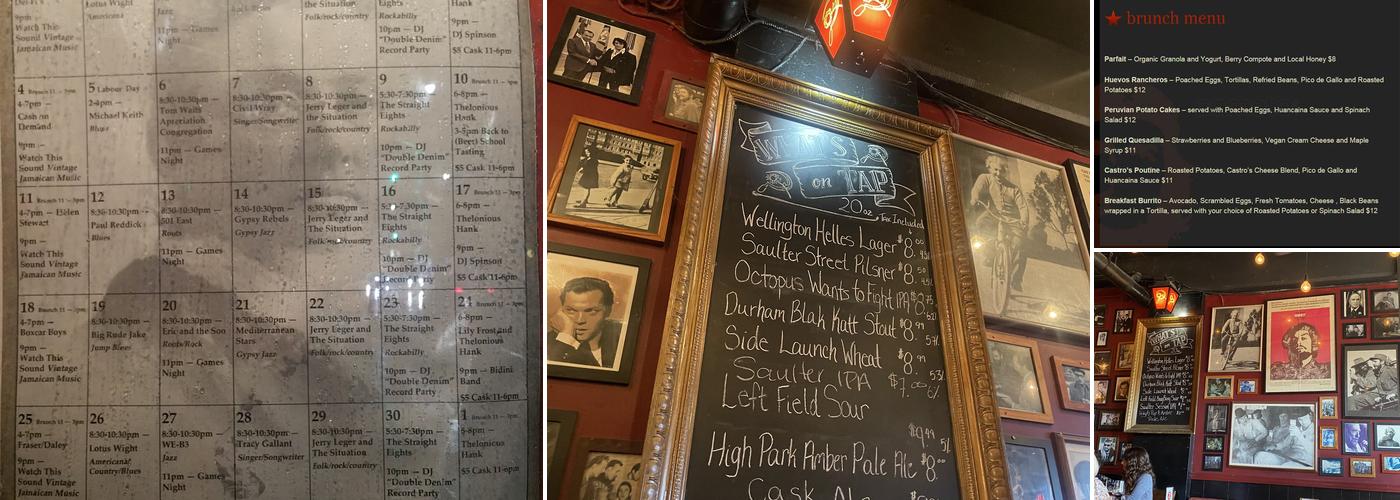 9pm —
Watch This
Sound Vintage
Jamaican Music
Lotus Wight
Americana
11pm — Games
Night
the Situation
Folk/rock/country
Eights
Rockabilly
10pm — DJ
"Double Denim"
Record Party
Hank
9pm —
DJ Spinson
$5 Cask 11-6pm
4 Brunch 11 – 3pm
4-7pm —
Cash on
Demand
9pm —
Watch This
Sound Vintage
Jamaican Music
5 Labour Day
2-4pm —
Michael Keith
Blues
6
8:30-10:30pm —
Tom Waits
Appreciation
Congregation
11pm — Games
Night
7
8:30-10:30pm —
Civil Wray
Singer/Songwriter
8
8:30-10:30pm —
Jerry Leger and
the Situation
Folk/rock/country
9
5:30-7:30pm —
The Straight
Eights
Rockabilly
10:30pm — DJ
"Double Denim"
Record Party
10 Brunch 11 – 3pm
6-8pm —
Thelonious
Hank
3-8pm Back to
(Beer) School
Tasting
$5 Cask 11-6pm
11 Brunch 11 – 3pm
4-7pm — Helen
Stewart
9pm —
Watch This
Sound Vintage
Jamaican Music
12
8:30-10:30pm —
Paul Reddick
Blues
13
8:30-10:30pm —
501 East
Roots
11pm — Games
Night
14
8:30-10:30pm —
Gypsy Rebels
Gypsy Jazz
15
8:30-10:30pm —
Jerry Leger and
The Situation
Folk/rock/country
16
5:30-7:30pm —
The Straight
Eights
Rockabilly
10:30pm — DJ
"Double Denim"
Record Party
17 Brunch 11 – 3pm
6-8pm —
Thelonious
Hank
9pm —
DJ Spinson
$5 Cask 11-6pm
18 Brunch 11 – 3pm
4-7pm —
Boxcar Boys
9pm —
Watch This
Sound Vintage
Jamaican Music
19
8:30-10:30pm —
Big Rude Jake
Jump Blues
20
8:30-10:30pm —
Eric and the Soo
Roots/Rock
11pm — Games
Night
21
8:30-10:30pm —
Mediterranean
Stars
Gypsy Jazz
22
8:30-10:30pm —
Jerry Leger and
The Situation
Folk/rock/country
23
5:30-7:30pm —
The Straight
Eights
Rockabilly
10:30pm — DJ
"Double Denim"
Record Party
24 Brunch 11 – 3pm
6-8pm —
Lily Frost and
Thelonious
Hank
9pm — Bidini
Band
$5 Cask 11-6pm
25 Brunch 11 – 3pm
4-7pm —
Fraser/Daley
9pm —
Watch This
Sound Vintage
Jamaican Music
26
8:30-10:30pm —
Lotus Wight
Americana/
Country/Blues
27
8:30-10:30pm —
WE-B3
Jazz
11pm — Games
Night
28
8:30-10:30pm —
Tracy Gallant
Singer/Songwriter
29
8:30-10:30pm —
Jerry Leger and
The Situation
Folk/rock/country
30
5:30-7:30pm —
The Straight
Eights
Rockabilly
10:30pm — DJ
"Double Denim"
Record Party
1 Brunch 11 – 3pm
6-8pm —
Thelonious
Hank
$5 Cask 11-6pm
WHAT'S
on TAP
20oz Tax Included
Wellington Helles Lager $8.
Saulter Street Pilsner $8.50
Octopus Wants to Fight IPA $8.75
Durham Blak Katt Stout $8.99
Side Launch Wheat $8.99
Saulter IPA $7.00
Left Field Sour
$9.49
High Park Amber Pale Ale $8.
Cask Ale
brunch menu
Parfait – Organic Granola and Yogurt, Berry Compote and Local Honey $8
Huevos Rancheros – Poached Eggs, Tortillas, Refried Beans, Pico de Gallo and Roasted
Potatoes $12
Peruvian Potato Cakes – served with Poached Eggs, Huancaina Sauce and Spinach
Salad $12
Grilled Quesadilla – Strawberries and Blueberries, Vegan Cream Cheese and Maple
Syrup $11
Castro's Poutine – Roasted Potatoes, Castro's Cheese Blend, Pico de Gallo and
Huancaina Sauce $11
Breakfast Burrito – Avocado, Scrambled Eggs, Fresh Tomatoes, Cheese , Black Beans
wrapped in a Tortilla, served with your choice of Roasted Potatoes or Spinach Salad $12
WHAT'S
on TAP